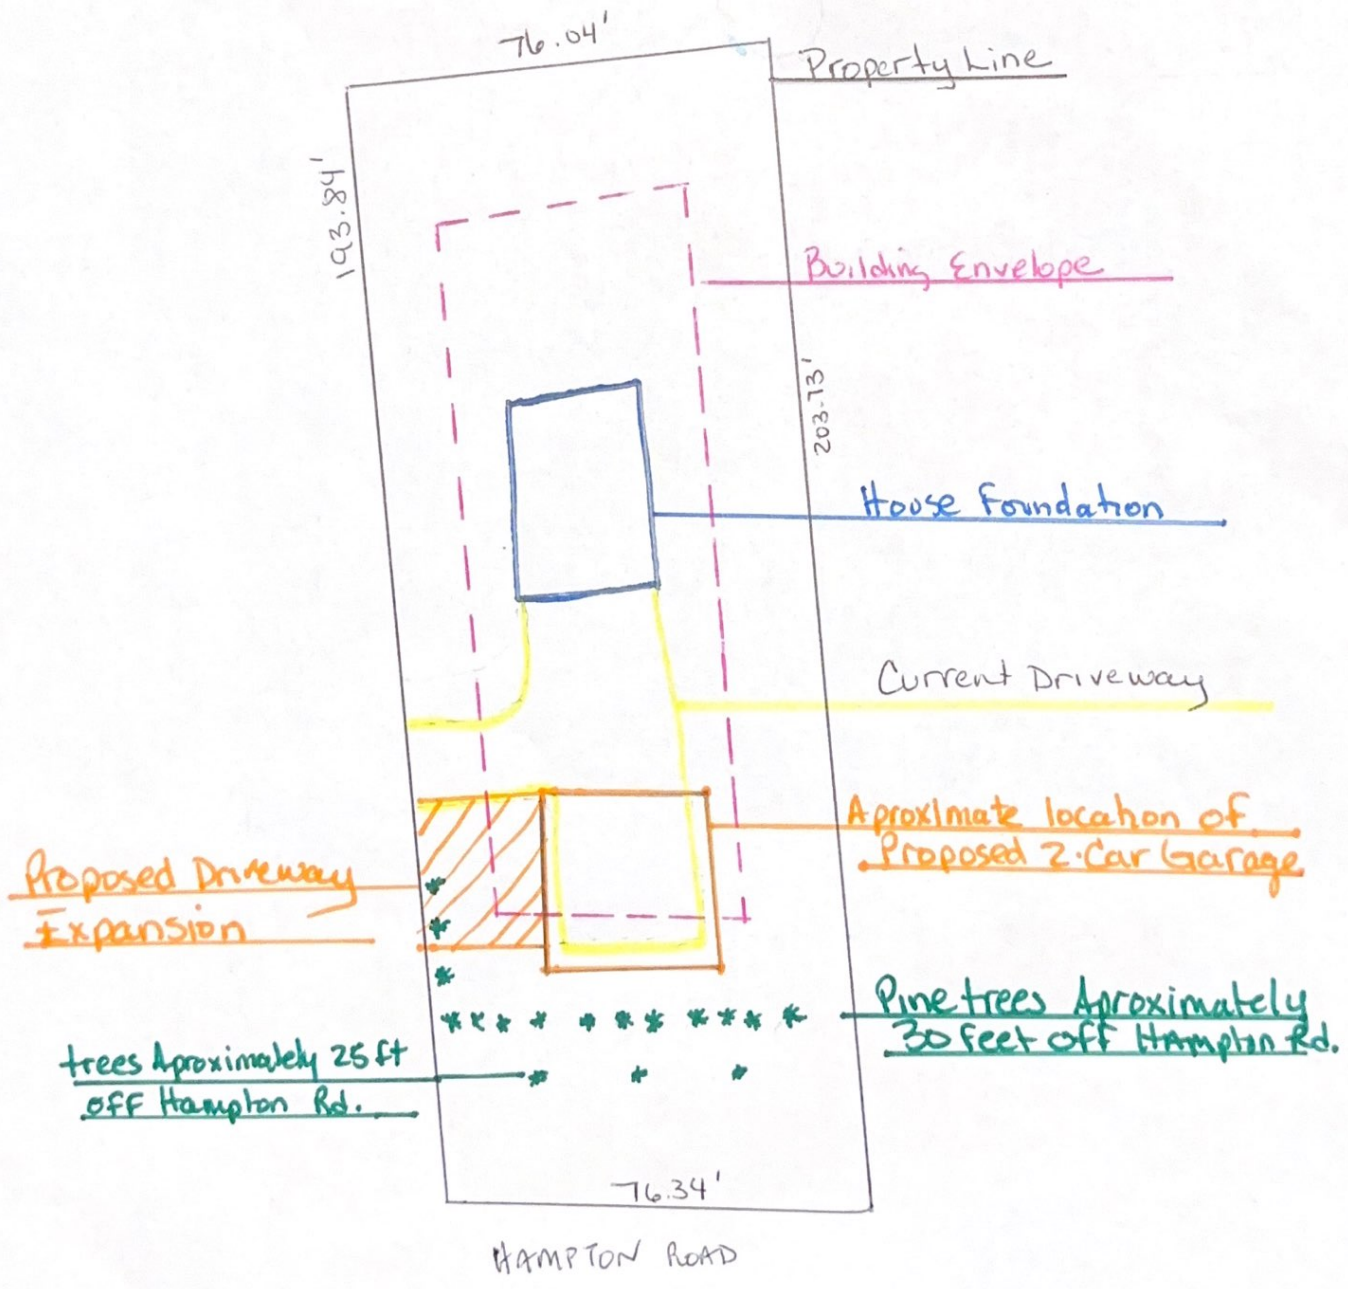 76.04'
Property Line
193.84'
Building Envelope
203.73'
House Foundation
Current Driveway
Aproximate location of
Proposed 2-Car Garage
Proposed Driveway
Expansion
Pine trees Aproximately
30 feet off Hampton Rd.
trees Aproximately 25 ft
off Hampton Rd.
76.34'
HAMPTON ROAD